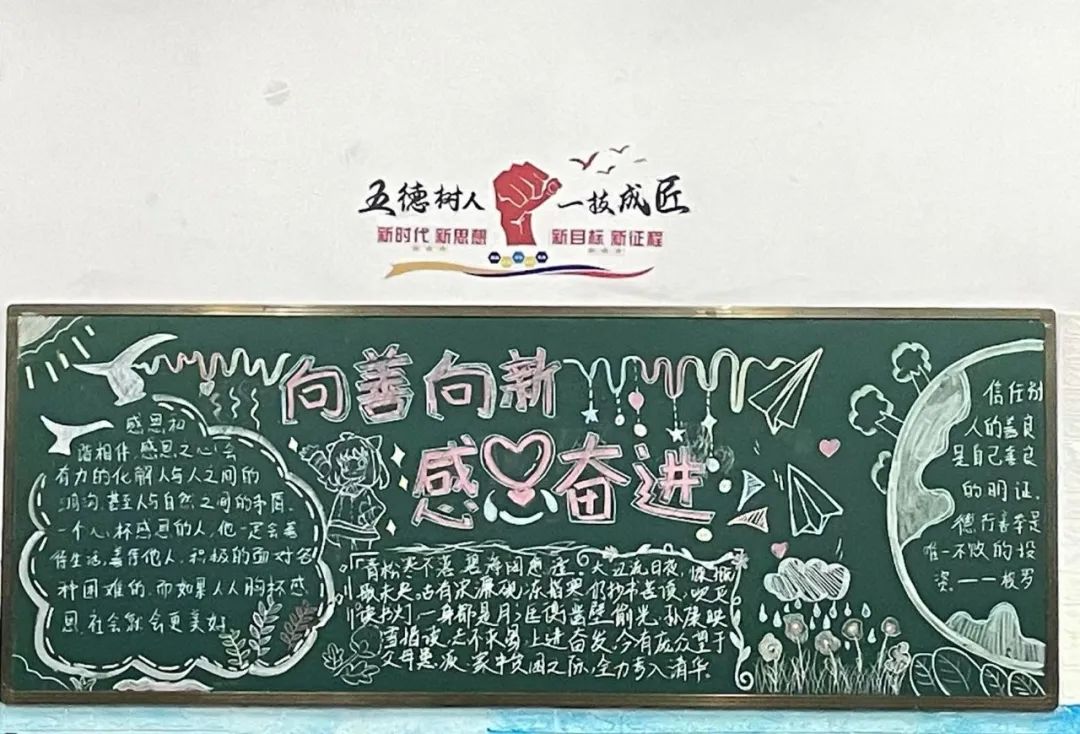 五德树人 一技成匠
新时代 新思想 新目标 新征程
向善向新
感 奋进
感恩和
谐相伴,感恩之心会
有力的化解人与人之间的
鸿沟,甚至人与自然之间的矛盾.
一个心怀感恩的人,他一定会善
待生活,善待他人,积极的面对各
种困难的.而如果人人胸怀感
恩,社会就会更美好.
青松寒不落,碧海阔愈澄
大丑流日夜,慷
歌未央,古有宋濂砚冰指寒仍抄书苦读,吹灭
读书灯,一身都是月;匡衡凿壁偷光,孙康映
雪怕读,无不求 上进奋发,今有庞众望于
父母患 ,家牛贫困之际,全力考入清华.
信任别
人的善良
是自己善良
的明证.
德行善举是
唯一不败的投
资.——梭罗